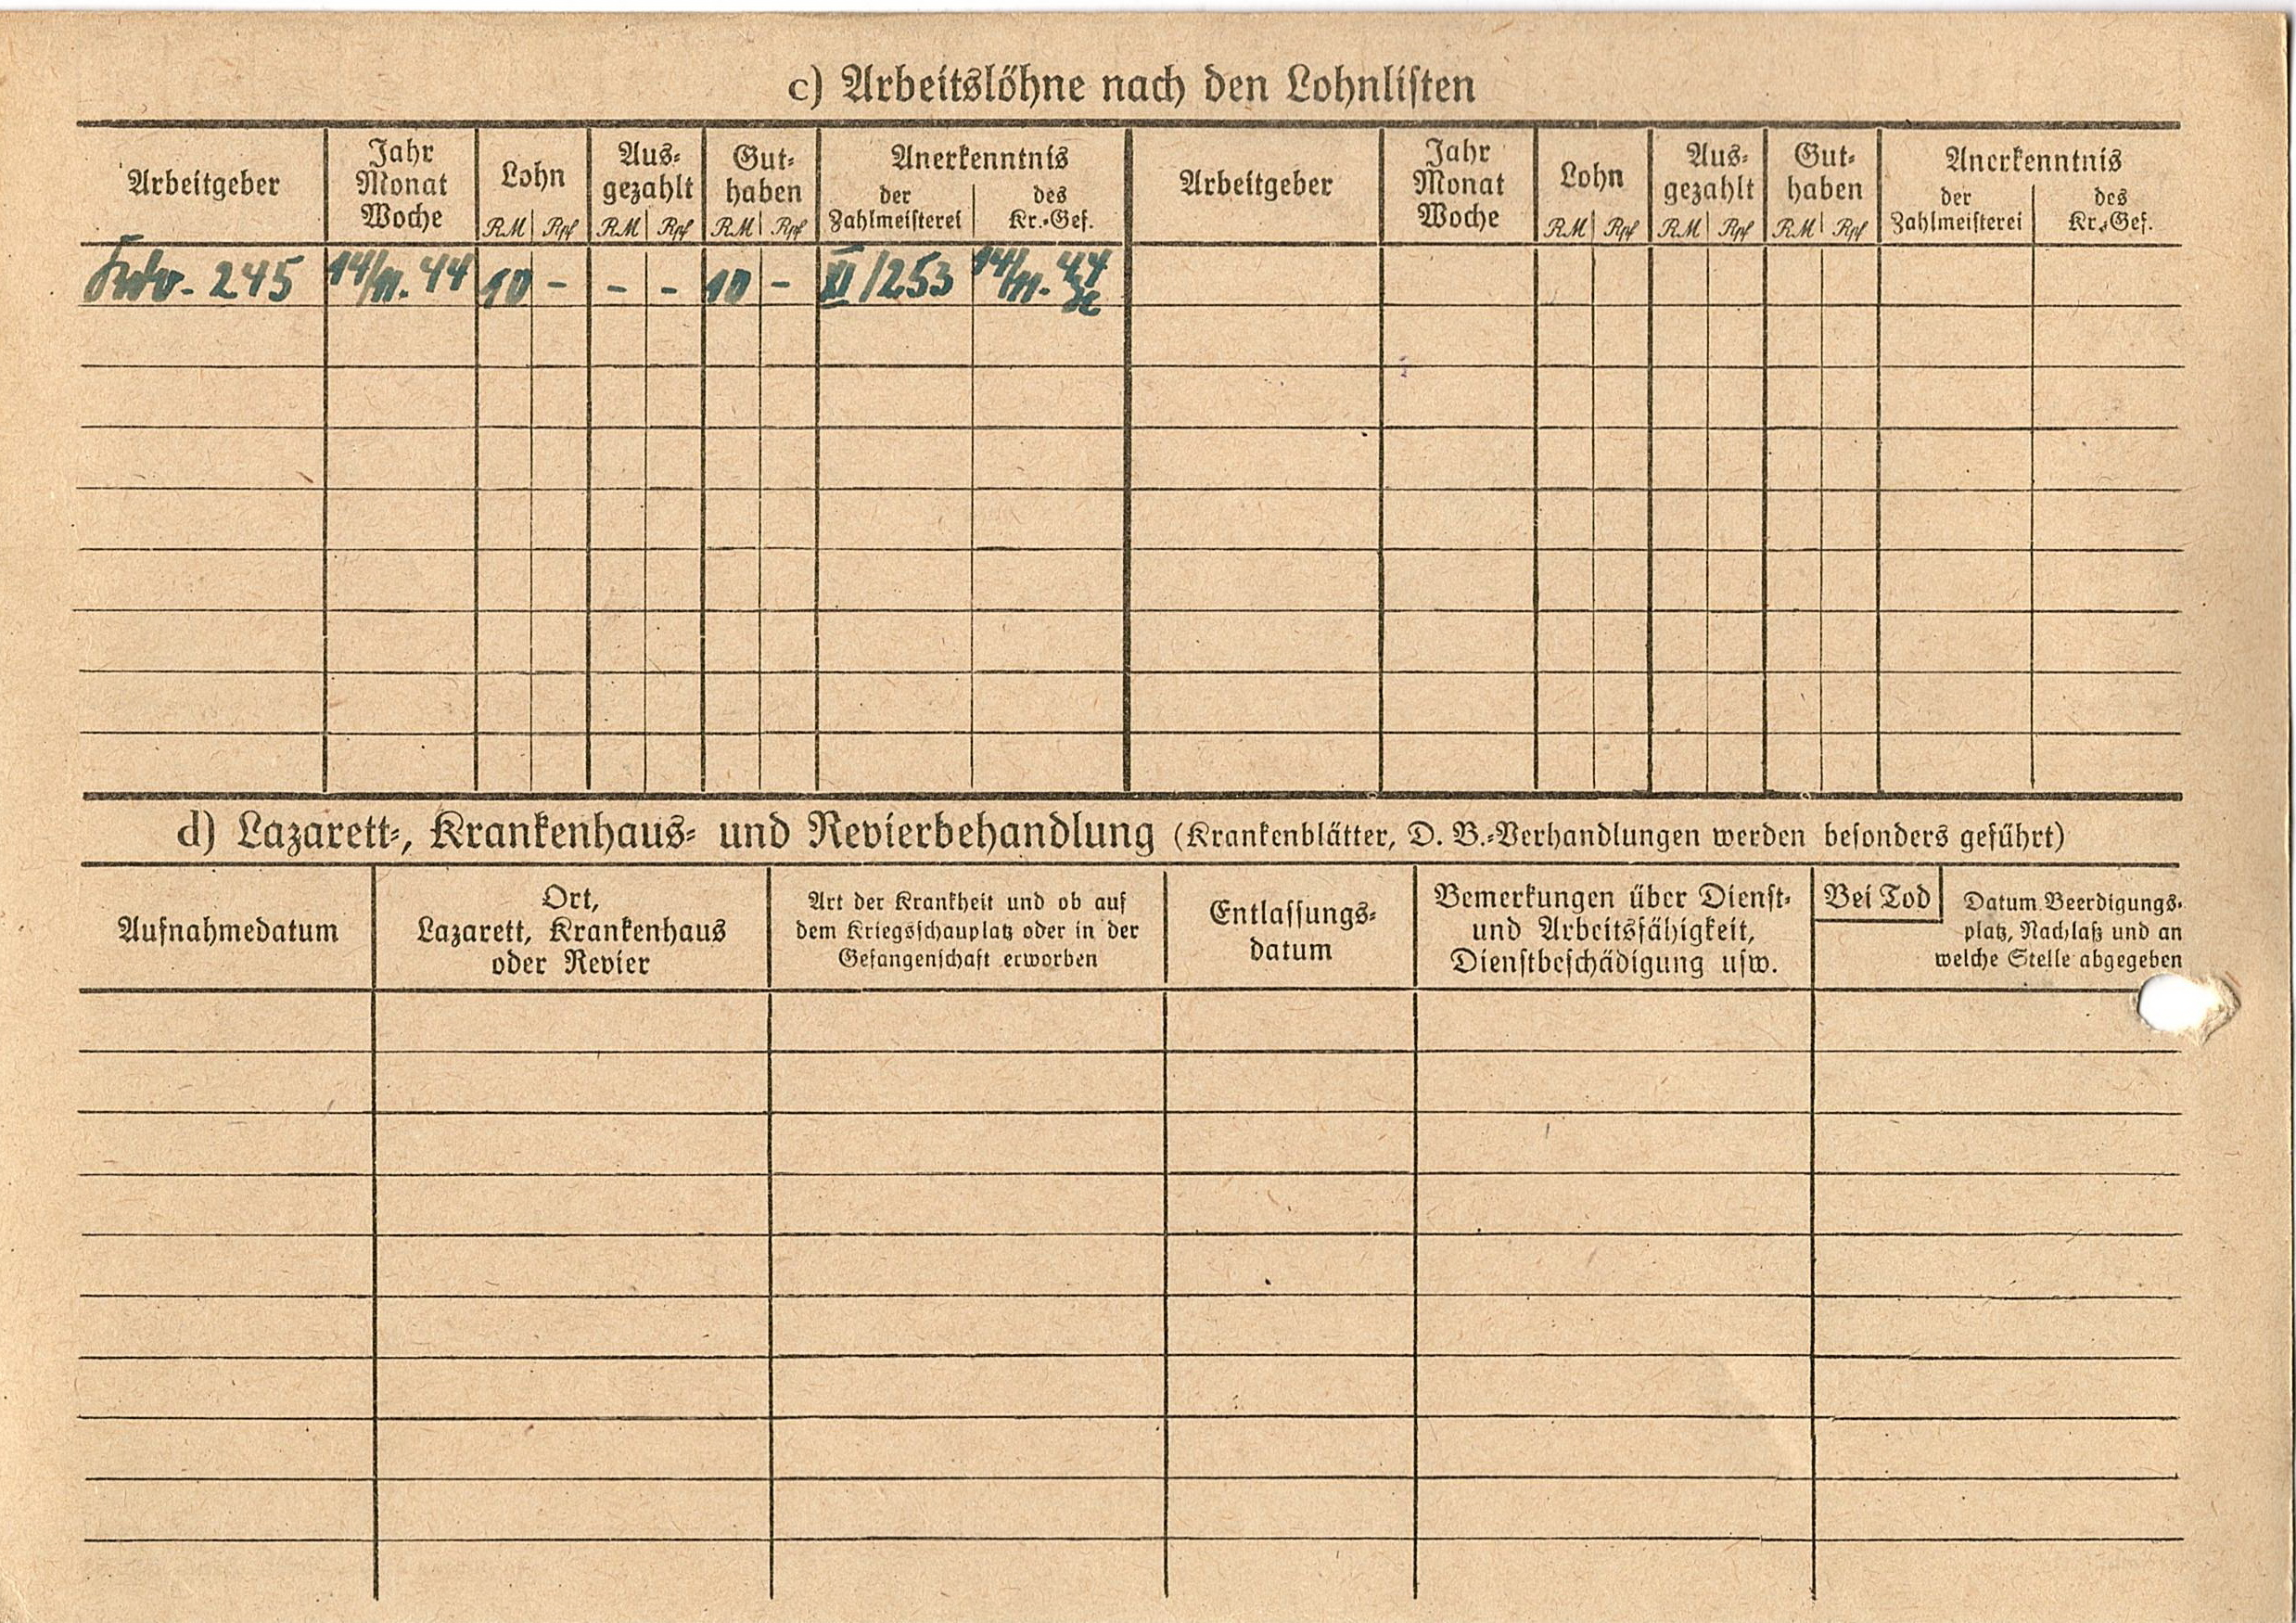 c) Arbeitslöhne nach den Lohnlisten
Arbeitgeber
Jahr
Monat
Woche
Lohn
RM Rpf
Aus-
gezahlt
RM Rpf
Gut-
haben
RM Rpf
Anerkenntnis
der
Zahlmeisterei
des
Kr.-Gef.
Arbeitgeber
Jahr
Monat
Woche
Lohn
RM Rpf
Aus-
gezahlt
RM Rpf
Gut-
haben
RM Rpf
Anerkenntnis
der
Zahlmeisterei
des
Kr.-Gef.
245 14/11. 44 10 - - - 10 - XI/253 14/11. 44
d) Lazarett-, Krankenhaus- und Revierbehandlung (Krankenblätter, D. B.-Verhandlungen werden besonders geführt)
Aufnahmedatum
Ort,
Lazarett, Krankenhaus
oder Revier
Art der Krankheit und ob auf
dem Kriegsschauplatz oder in der
Gefangenschaft erworben
Entlassungs-
datum
Bemerkungen über Dienst-
und Arbeitsfähigkeit,
Dienstbeschädigung usw.
Bei Tod
Datum Beerdigungs-
platz, Nachlaß und an
welche Stelle abgegeben